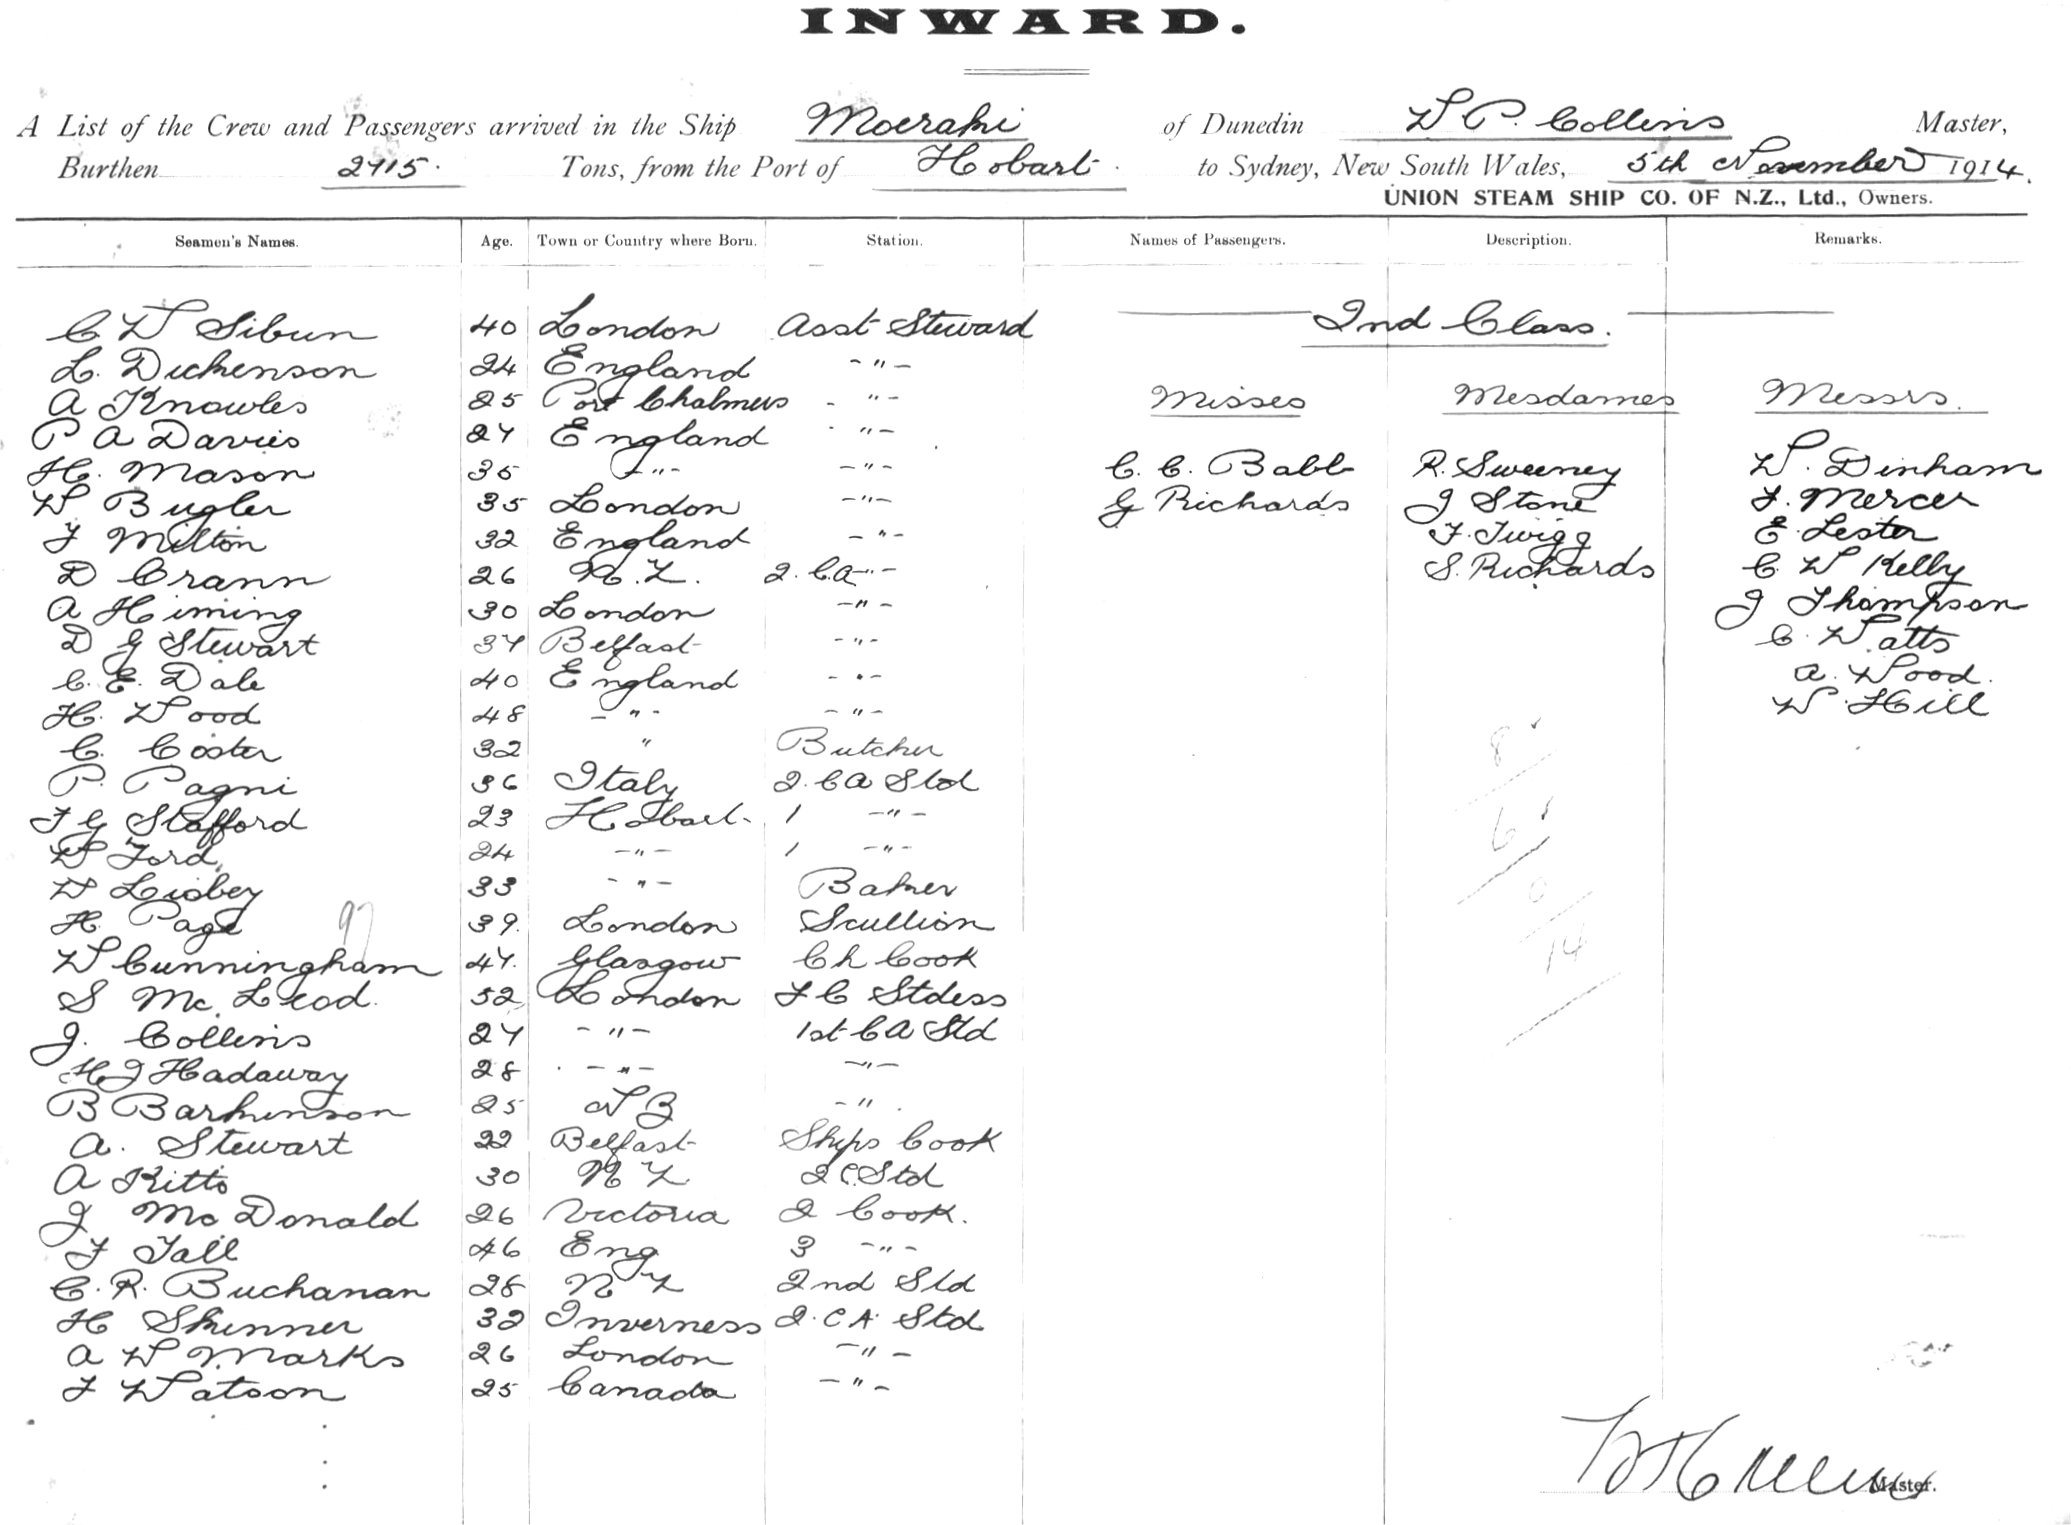 INWARD.
A List of the Crew and Passengers arrived in the Ship Moeraki of Dunedin W P. Collins Master,
Burthen 2715. Tons, from the Port of Hobart. to Sydney, New South Wales, 5th November 1914.
UNION STEAM SHIP CO. OF N.Z., Ltd., Owners.
Seamen's Names. Age. Town or Country where Born. Station. Names of Passengers. Description. Remarks.
C W Sibun 40 London Asst Steward 2nd Class.
L. Dickenson 24 England - " -
A Knowles 25 Port Chalmers - " - Misses Mesdames Messrs.
P A Davies 27 England - " -
H. Mason 35 - " - - " - C. C. Babb R. Sweeney W. Dinham
W Bugler 35 London - " - G Richards J Stone F. Mercer
F Milton 32 England - " - F. Twigg E. Lester
D Crann 26 N.Z. 2. C.A - " - S. Richards C. W Kelly
A Himing 30 London - " - J Thompson
D G Stewart 37 Belfast - " - C. Watts
C. E. Dale 40 England - " - A. Wood.
H. Wood 48 - " - - " - W. Hill
C. Coster 32 " Butcher 8
P. Pagni 36 Italy 2. C A Std
F G Stafford 23 Hobart 1 - " - 6
W Ford 24 - " - 1 - " -
W Lisbey 33 - " - Baker 0
H. Page 97 39. London Scullion
W Cunningham 47. Glasgow Ch Cook 14
S McLeod. 52 London F C Stdess
J. Collins 27 - " - 1st C A Std
H J Hadaway 28 - " - - " -
B Barkinson 25 N Z - " .
A. Stewart 22 Belfast Ships Cook
A Kitto 30 N Z. 2 C. Std
J McDonald 26 Victoria 2 Cook.
F Tall 46 Eng 3 - " -
C. R. Buchanan 28 N Z 2nd Std
H Skinner 32 Inverness 2. C A. Std
A W Marks 26 London - " -
F Watson 25 Canada - " -
Master.